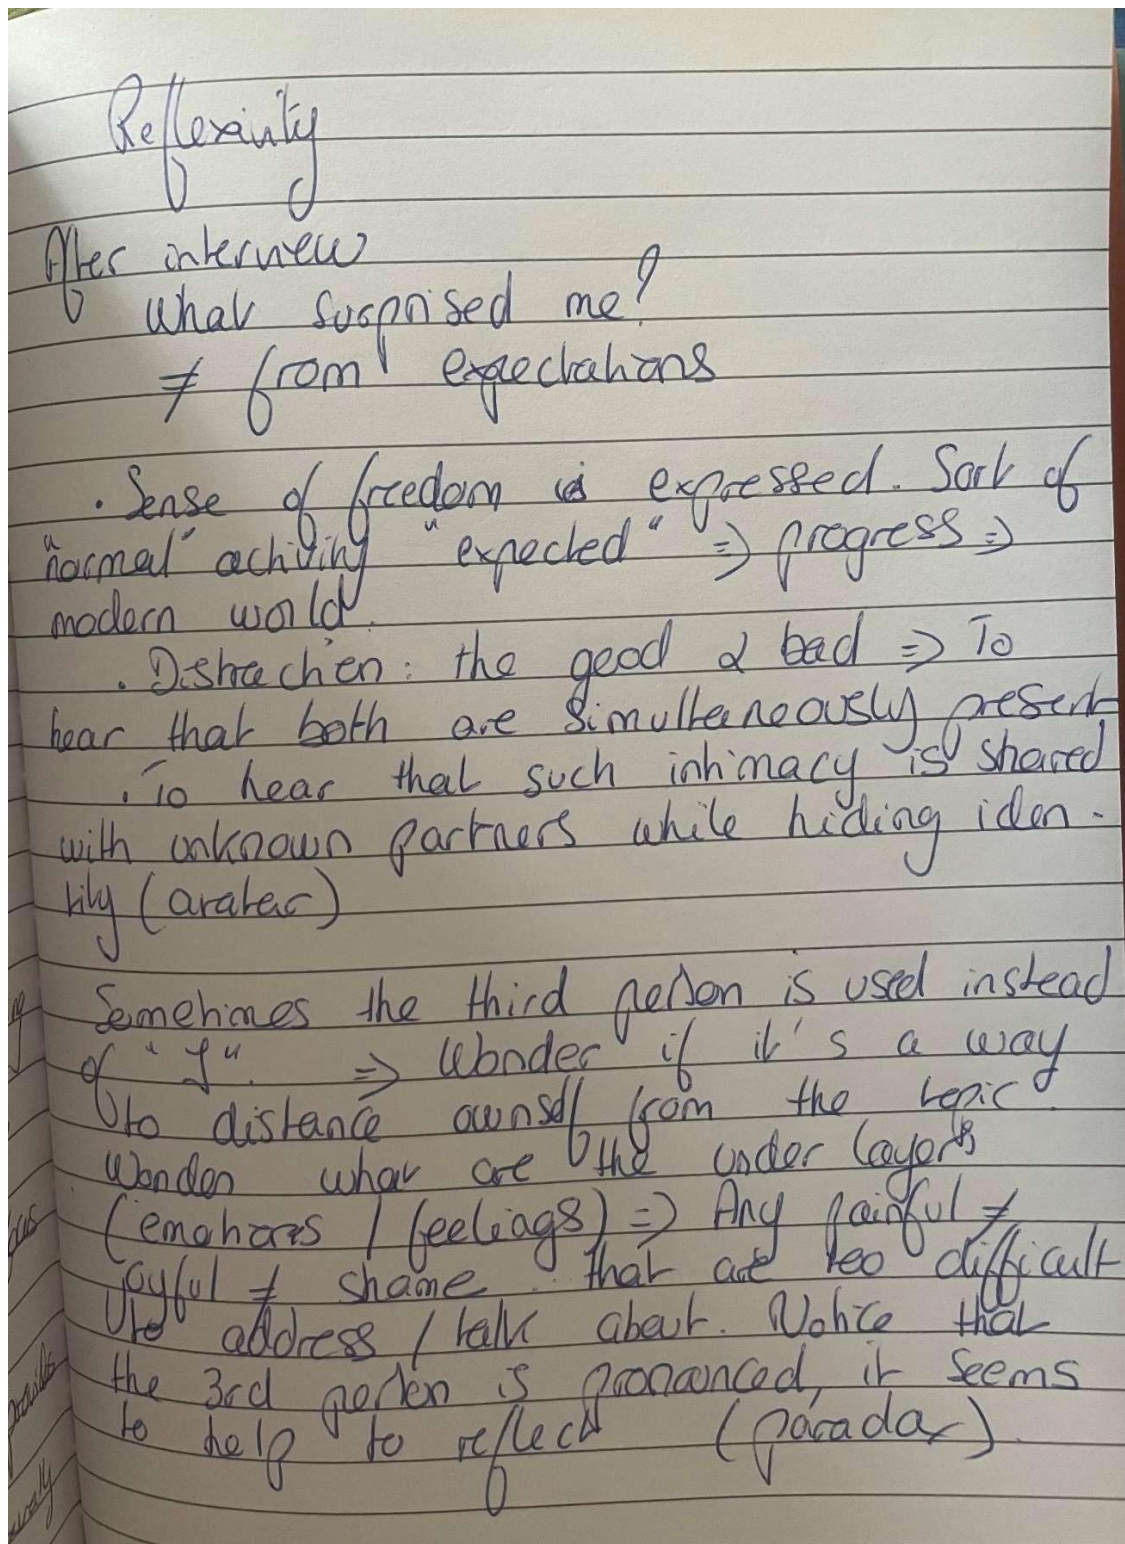 Reflexivity
After interview
What surprised me?
≠ from expectations
. Sense of freedom is expressed. Sort of
"normal" activity "expected" => progress =>
modern world.
. Distraction : the good & bad => To
hear that both are simultaneously present
. To hear that such intimacy is shared
with unknown partners while hiding iden-
tity (avatar)
Sometimes the third person is used instead
of "I". => Wonder if it's a way
to distance ownself from the topic
Wonder what are the under layers
(emotions / feelings) => Any painful ≠
joyful ≠ shame that are too difficult
to address / talk about. Notice that
the 3rd person is pronounced, it seems
to help to reflect (paradox).